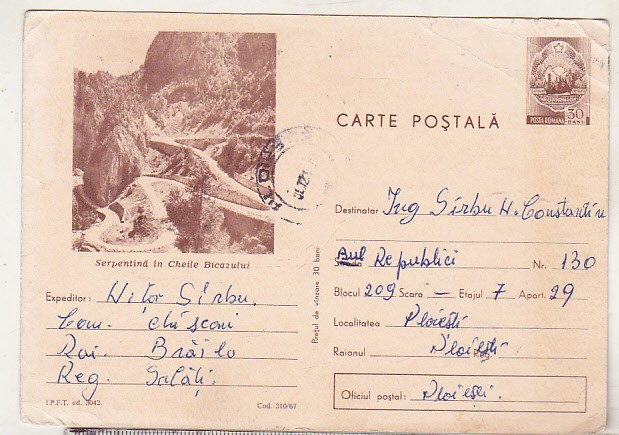 CARTE POȘTALĂ
POSTA ROMANA
30
BANI
Serpentină în Cheile Bicazului
Expeditor: Nitor Sîrbu.
Com.
Rai. Brăila
Reg. Galați.
I.P.F.T. cd. 3042.
Cod. 310/67
Prețul de vînzare 30 bani
Destinatar Ing Sîrbu N. Constantin
Bul Republici Nr. 130
Blocul 209 Scara — Etajul 7 Apart. 29
Localitatea Ploiești
Raionul Ploiești Reg.
Oficiul poștal: Ploiești.